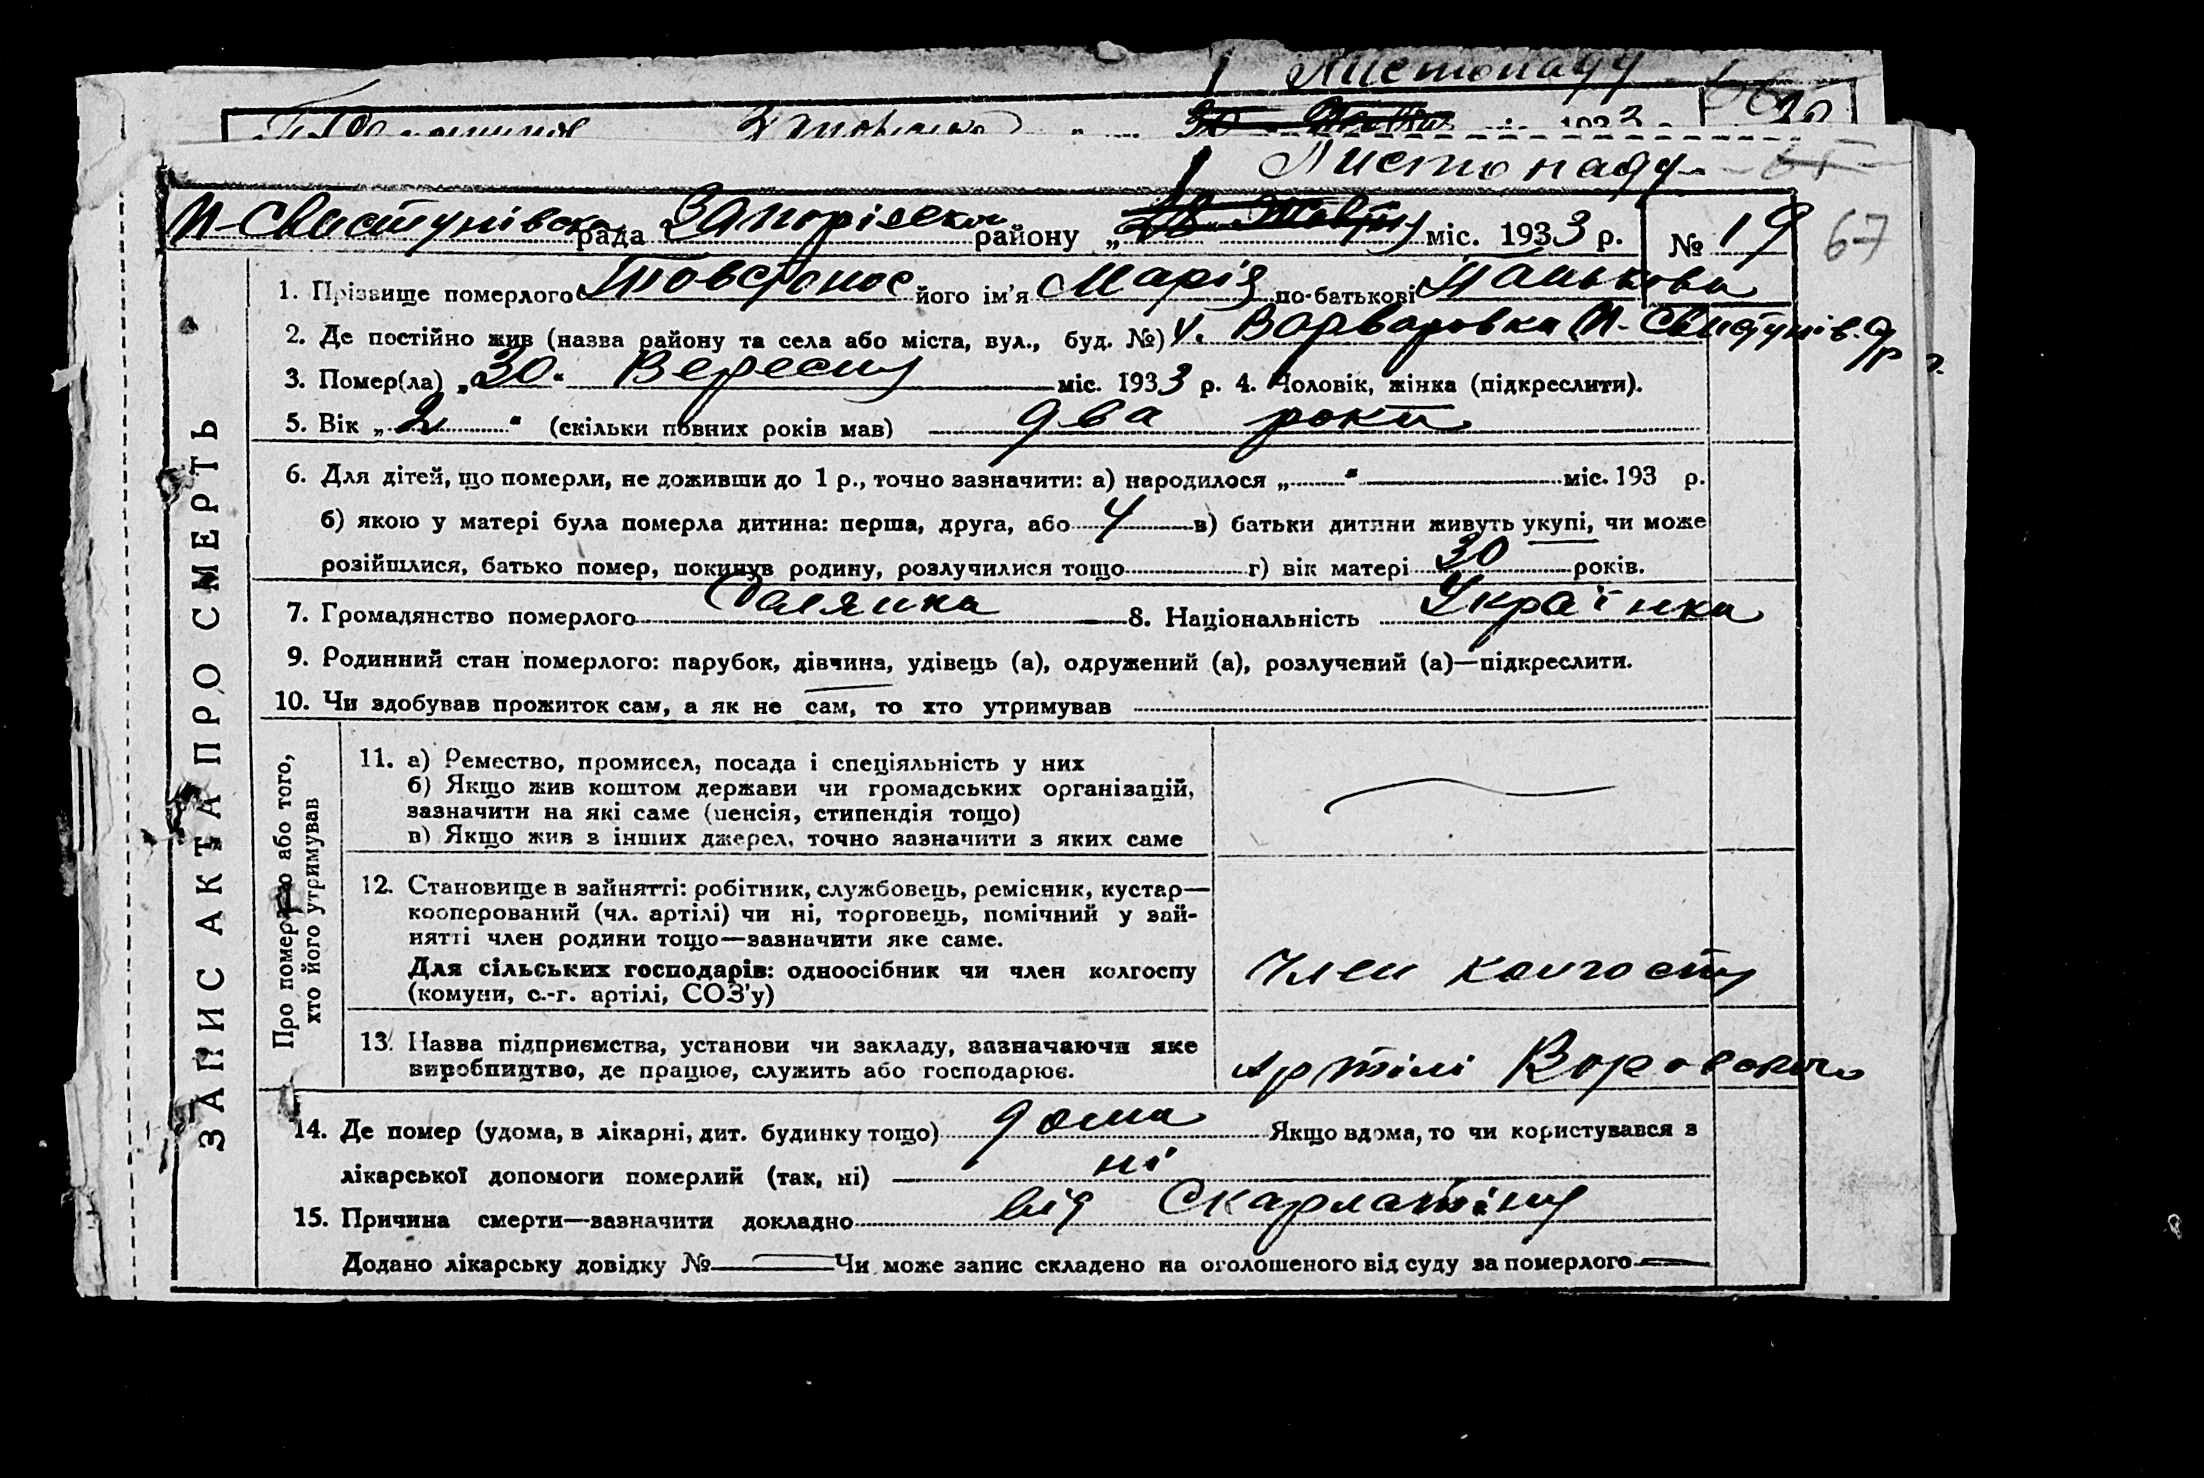 Листопаду
193 3
Листонаду
Н-Свистунівська рада Запорізького району „ міс. 1933 р. № 19 67
1. Прізвище померлого Товстонос його ім'я Марія по-батькові Панькова
2. Де постійно жив (назва району та села або міста, вул., буд. №) Варваровка Н-Свистунів.
3. Помер(ла) „30“ Вересня міс. 1933 р. 4. Чоловік, жінка (підкреслити).
5. Вік „2“ (скільки повних років мав) два роки
6. Для дітей, що померли, не доживши до 1 р., точно зазначити: а) народилося „ “ міс. 193 р.
б) якою у матері була померла дитина: перша, друга, або 4 в) батьки дитини живуть укупі, чи може
розійшлися, батько помер, покинув родину, розлучилися тощо г) вік матері 30 років.
7. Громадянство померлого Селянка 8. Національність Українка
9. Родинний стан померлого: парубок, дівчина, удівець (а), одружений (а), розлучений (а)—підкреслити.
10. Чи здобував прожиток сам, а як не сам, то хто утримував
ЗАПИС АКТА ПРО СМЕРТЬ
Про померлого або того,
хто його утримував
11. а) Ремество, промисел, посада і спеціяльність у них
б) Якщо жив коштом держави чи громадських організацій,
зазначити на які саме (пенсія, стипендія тощо)
в) Якщо жив з інших джерел, точно зазначити з яких саме
12. Становище в зайнятті: робітник, службовець, ремісник, кустар—
кооперований (чл. артілі) чи ні, торговець, помічний у зай-
нятті член родини тощо—зазначити яке саме.
Для сільських господарів: одноосібник чи член колгоспу
(комуни, с.-г. артілі, СОЗ'у)
Член колгоспу
13. Назва підприємства, установи чи закладу, зазначаючи яке
виробництво, де працює, служить або господарює.
Артілі Воровського
14. Де помер (удома, в лікарні, дит. будинку тощо) дома Якщо вдома, то чи користувався з
лікарської допомоги померлий (так, ні) ні
15. Причина смерти—зазначити докладно від Скарлатіни
Додано лікарську довідку № Чи може запис складено на оголошеного від суду за померлого